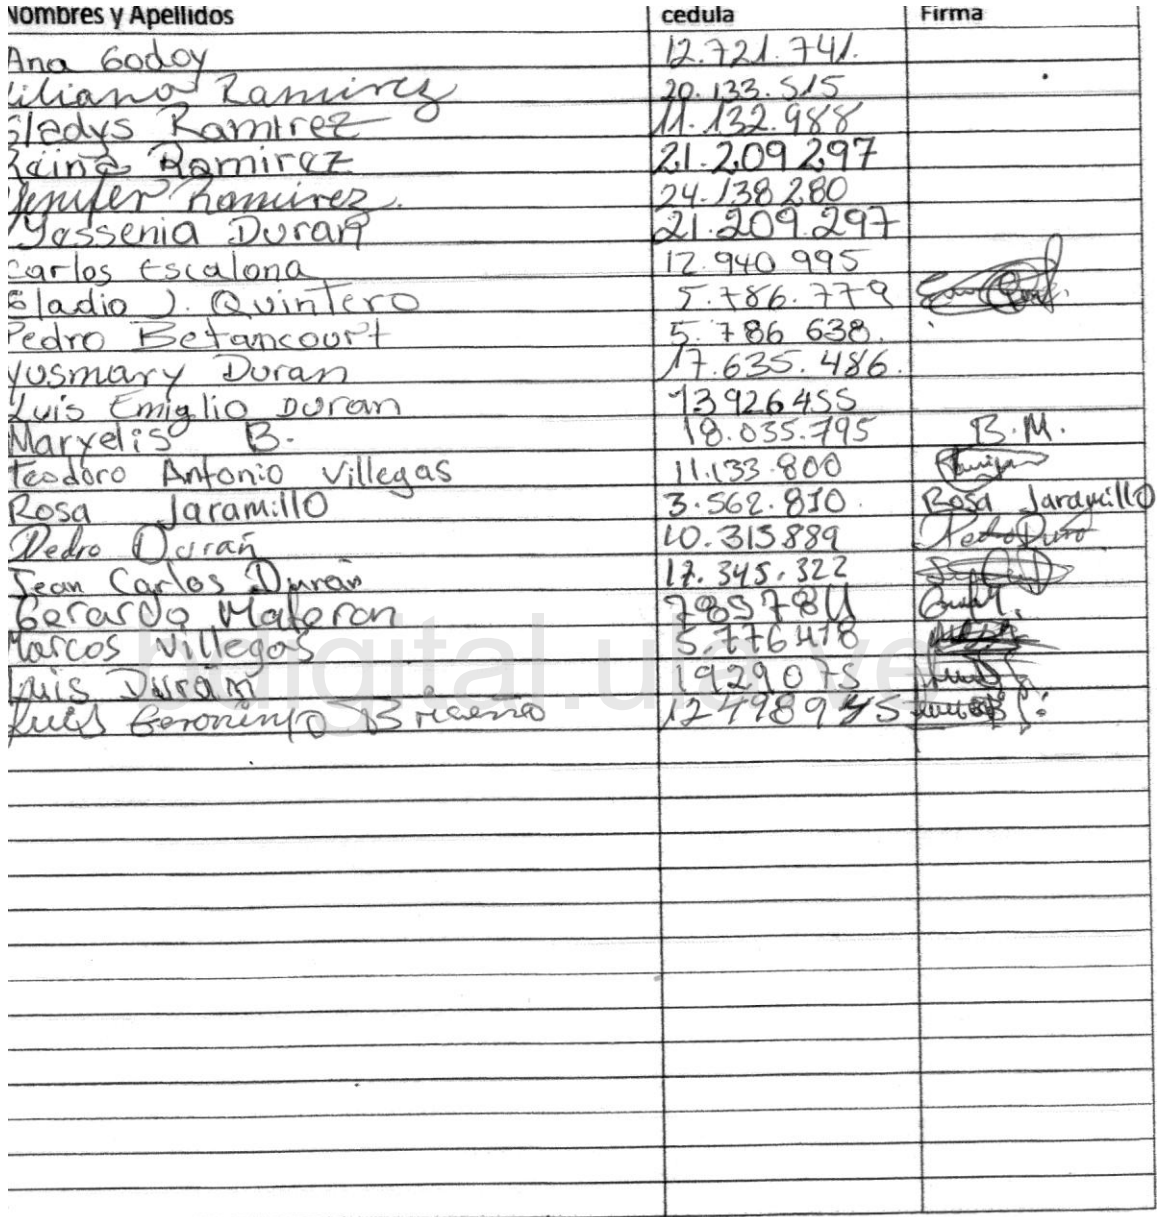 Nombres y Apellidos cedula Firma
Ana Godoy 12.721.741.
Liliana Ramirez 20.133.515
Gladys Ramirez 11.132.988
Ramirez 21.209297
Yenifer Ramirez. 24.138280
Yessenia Duran 21.209.297
Carlos Escalona 12.940995
Eladio J. Quintero 5.786.779
Pedro Betancourt 5.786 638.
Yusmary Duran 17.635.486.
Luis Emiglio Duran 13926455
Maryelis B. 18.035.795 B.M.
Teodoro Antonio Villegas 11.133.800
Rosa Jaramillo 3.562.810. Rosa Jaramillo
Pedro Duran 10.313889
Jean Carlos Duran 17.345.322
Gerardo Materan
Marcos Villegas 5.776418
Luis Duran 1929075
Luis Geronimo Briceño
bdigital.ula.ve